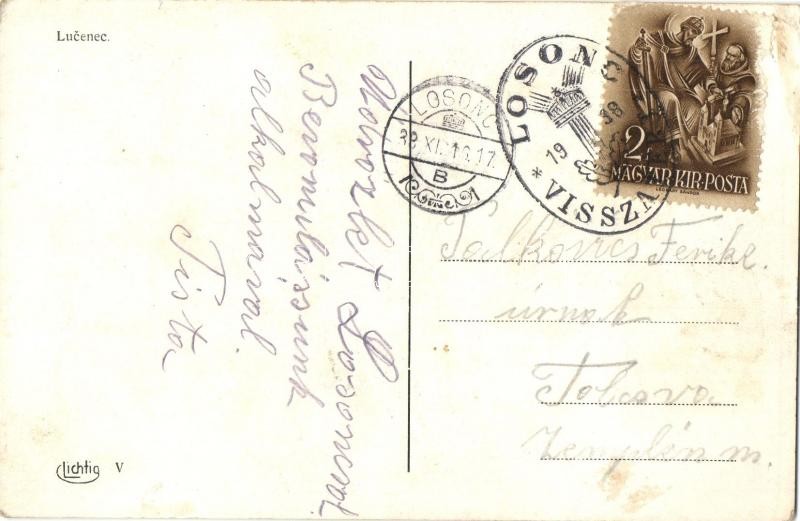 Lučenec.
Üdvözlet Losoncról
Bevonulásunk
alkalmával
Pista
LOSONC
38.XI.16.17
B
LOSONC
1938
* VISSZA
2
MAGYAR KIR·POSTA
úrnak
Tolcsva
Zemplén m.
Lichtig V